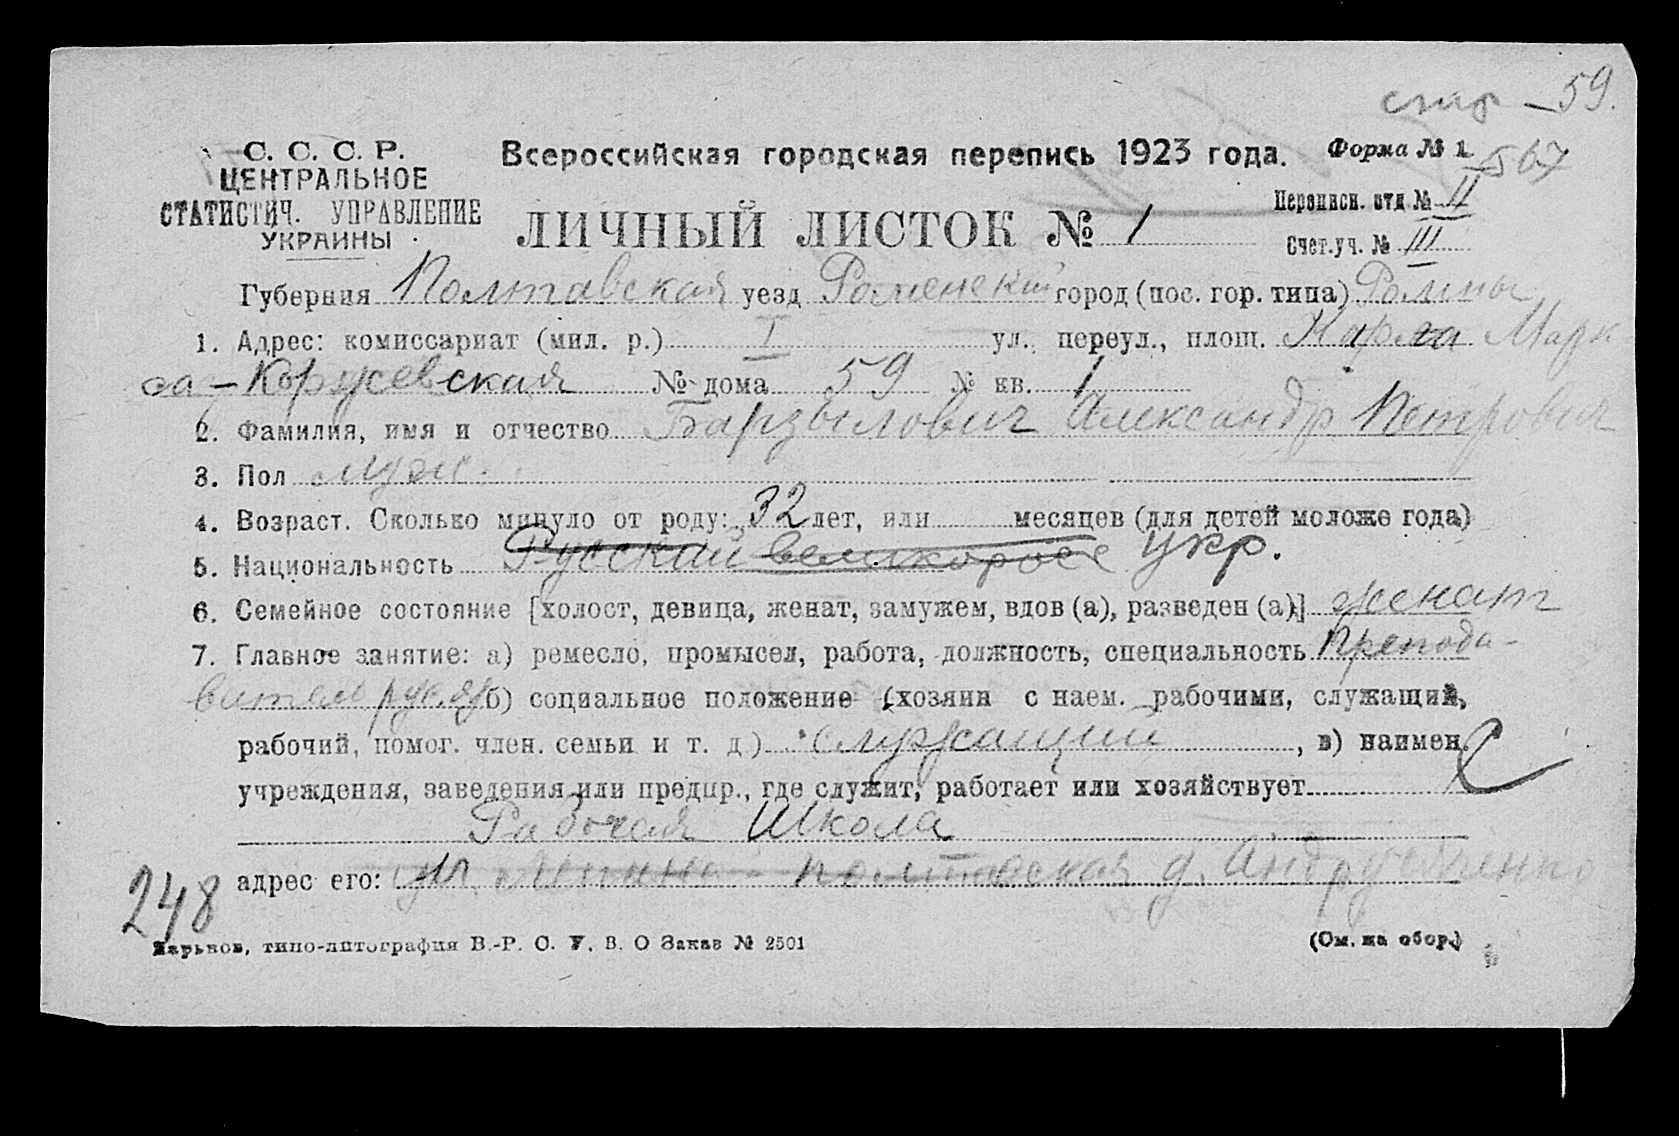 стр — 59.
С. С. С. Р.
ЦЕНТРАЛЬНОЕ
СТАТИСТИЧ. УПРАВЛЕНИЕ
УКРАИНЫ
Всероссийская городская перепись 1923 года.
Форма № 1
567
ЛИЧНЫЙ ЛИСТОК № 1
Переписн. отд. № II
Счет. уч. № III
Губерния Полтавская уезд Роменский город (пос. гор. типа) Ромны
1. Адрес: комиссариат (мил. р.) I ул. переул., площ. Карла Марк
са - Коржевская № дома 59 № кв. 1
2. Фамилия, имя и отчество Барзылович Александр Петрович
3. Пол муж.
4. Возраст. Сколько минуло от роду: 32 лет, или месяцев (для детей моложе года)
5. Национальность Русский великоросс Укр.
6. Семейное состояние [холост, девица, женат, замужем, вдов (а), разведен (а)] женат
7. Главное занятие: а) ремесло, промысел, работа, должность, специальность Препода-
ватель рус. яз б) социальное положение (хозяин с наем. рабочими, служащий,
рабочий, помог. член. семьи и т. д.) Служащий, в) наимен.
учреждения, заведения или предпр., где служит, работает или хозяйствует
Рабочая Школа
адрес его: ул. Ленина - Полтавская д. Андрущенко
248
Харьков, типо-литография В.-Р. С. У. В. О Заказ № 2501
(См. на обор.)